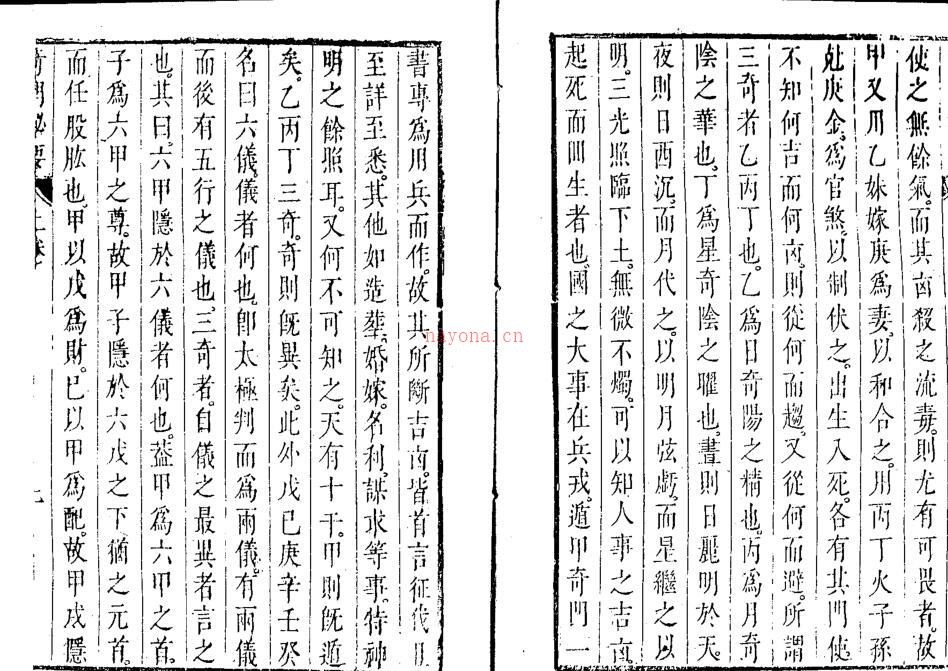 使之無餘氣。而其卤殺之流毒。則尤有可畏者。故
甲又用乙妹嫁庚爲妻。以和合之。用丙丁火子孫
尅庚金。爲官煞。以制伏之。出生入死。各有其門。使
不知何吉而何卤。則從何而趨。又從何而避。所謂
三奇者。乙丙丁也。乙爲日奇。陽之精也。丙爲月奇
陰之華也。丁爲星奇。陰之曜也。晝則日麗明於天。
夜則日西沉。而月代之。以明月弦虧。而星繼之以
明。三光照臨下土。無微不燭。可以知人事之吉卤
起死而囬生者也。國之大事在兵戎。遁甲奇門一
書專爲用兵而作。故其所斷吉卤。皆首言征伐。且
至詳至悉。其他如造塟。婚嫁。名利。謀求等事。特神
明之餘照耳。又何不可知之。天有十干。甲則既遁
矣。乙丙丁三奇。奇則既異矣。此外戊巳庚辛壬癸
名曰六儀。儀者何也。卽太極判而爲兩儀。有兩儀
而後有五行之儀也。三奇者。自儀之最異者言之
也。其曰。六甲隱於六儀者何也。葢甲爲六甲之首。
子爲六甲之尊。故甲子隱於六戊之下。猶之元首。
而任股肱也。甲以戊爲財。巳以甲爲配。故甲戌隱
奇門秘要
上卷
nayona.cn